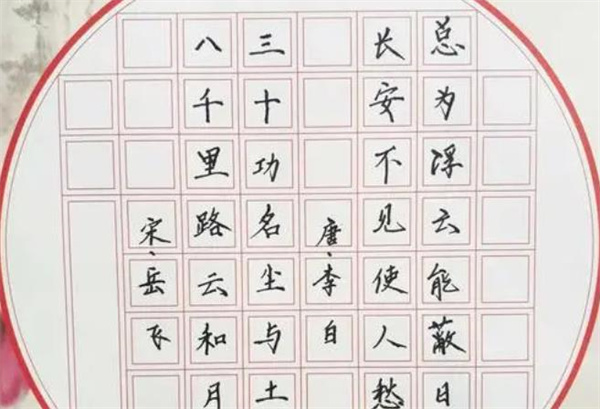 总为浮云能蔽日
长安不见使人愁
唐·李白
三十功名尘与土
八千里路云和月
宋·岳飞